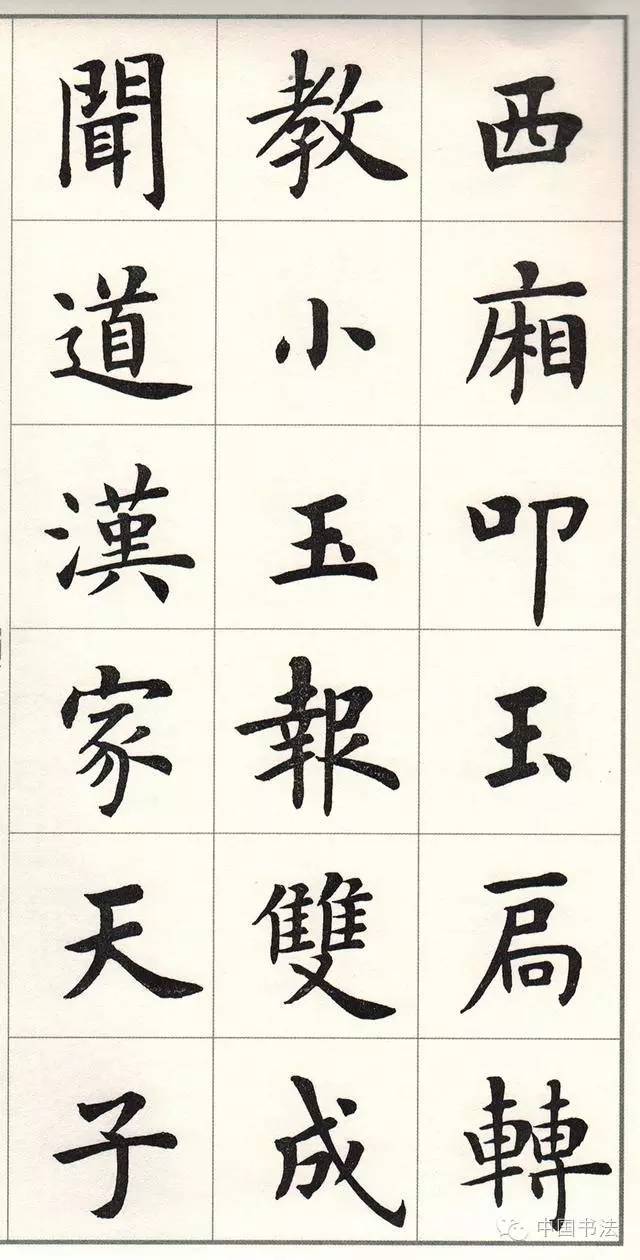 西廂叩玉扃轉
教小玉報雙成
聞道漢家天子
中国书法